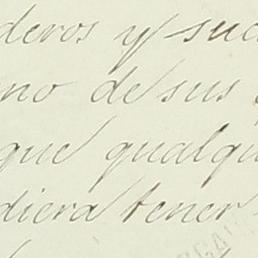 deros y suc
no de sus
que qualqu
diera tener